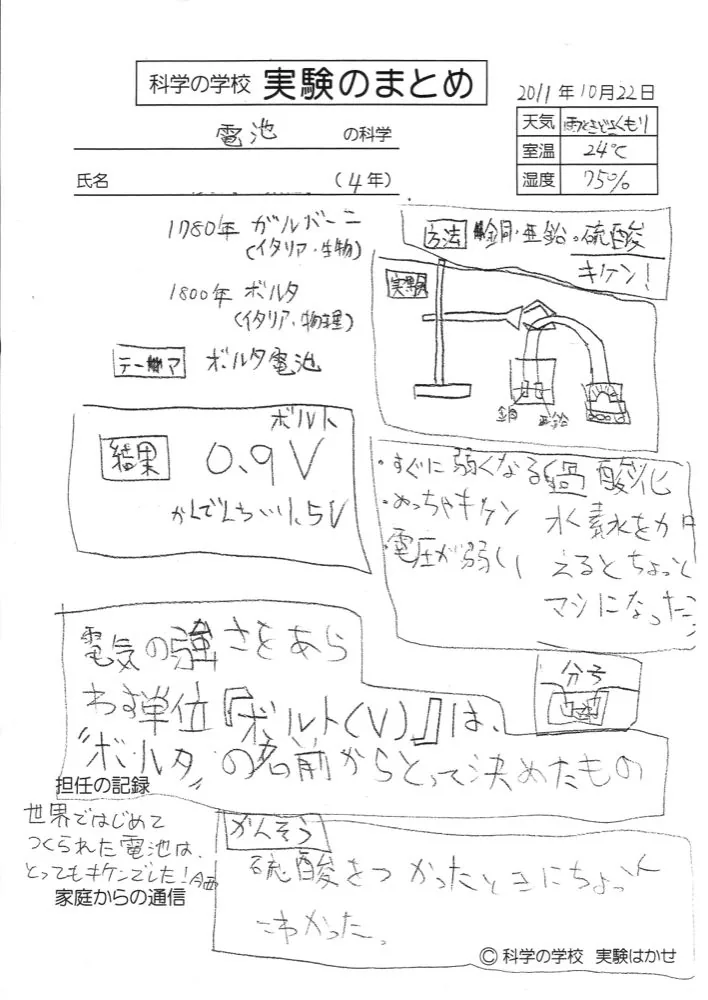 科学の学校 実験のまとめ
2011年10月22日
電池 の科学
天気 雨ときどきくもり
室温 24℃
氏名 (4年)
湿度 75%
1780年 ガルバーニ
(イタリア・生物)
1800年 ボルタ
(イタリア・物理)
テーマ ボルタ電池
方法 銅・亜鉛・硫酸
キケン!
実験
銅 亜鉛
ボルト
結果 0.9V
かんでんち1.5V
・すぐに弱くなる
・めっちゃキケン
・電圧が弱い
過酸化
水素水を加
えるとちょっと
マシになった
電気の強さをあら
わす単位『ボルト(V)』は、
"ボルタ"の名前からとって決めたもの
担任の記録
世界ではじめて
つくられた電池は、
とってもキケンでした!今西
家庭からの通信
かんそう
硫酸をつかったときにちょっと
こわかった。
© 科学の学校 実験はかせ